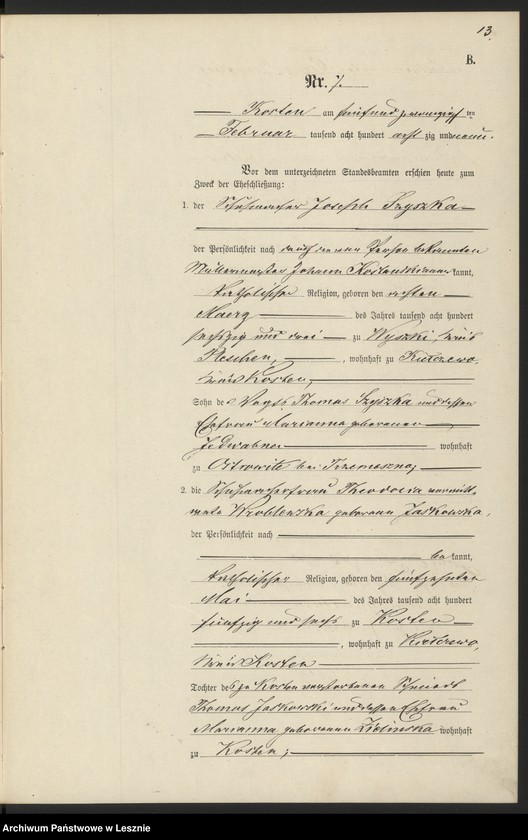 13.
B.
Nr. 7.
Kosten am fünfundzwanzigsten
Februar tausend acht hundert acht zig und neun.
Vor dem unterzeichneten Standesbeamten erschien heute zum
Zweck der Eheschließung:
1. der Schuhmacher Joseph Szyszka
der Persönlichkeit nach durch den von Person bekannten
Müllermeister Johann kannt,
katholischer Religion, geboren den achten
Maerz des Jahres tausend acht hundert
sechszig und drei zu Wyszki, Kreis
Pleschen, wohnhaft zu
Kreis Kosten,
Sohn des Vogts Thomas Szyszka und dessen
Ehefrau Marianna geborenen
Jedwabna wohnhaft
zu Ostrowite bei Trzemeszno;
2. die Schuhmacherfrau Theodosia verwitt-
wete Wroblewska geborene Jaskowska,
der Persönlichkeit nach
be kannt,
katholischer Religion, geboren den fünfzehnten
Mai des Jahres tausend acht hundert
fünfzig und sechs zu Kosten
, wohnhaft zu
Kreis Kosten
Tochter des zu Kosten verstorbenen Schmieds
Thomas Jaskowski und dessen Ehefrau
Marianna geborenen Zielinska wohnhaft
zu Kosten;
Archiwum Państwowe w Lesznie